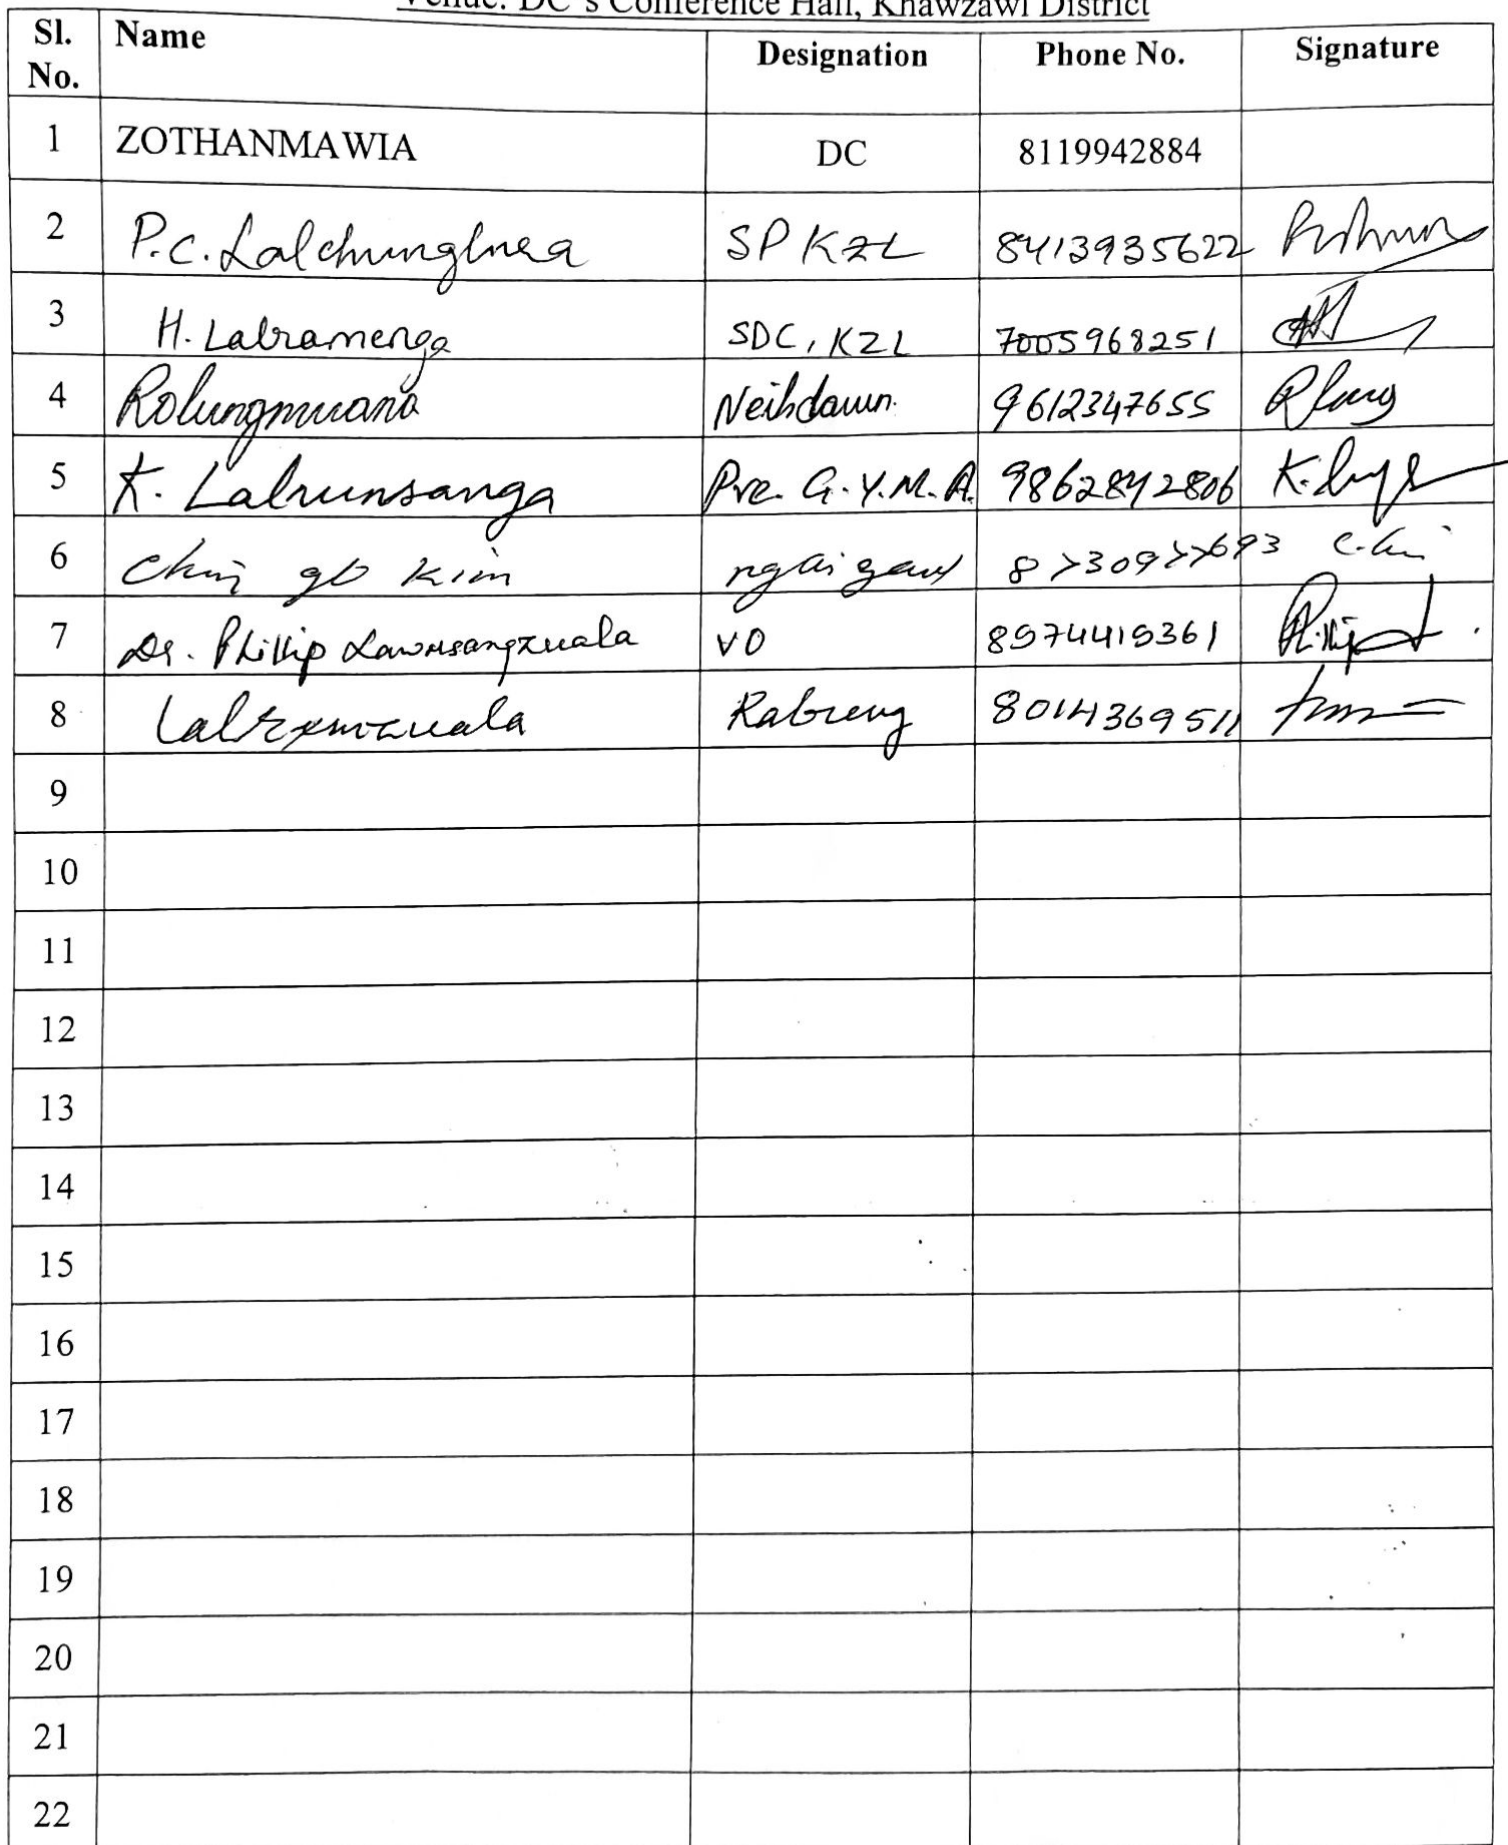 Venue: DC's Conference Hall, Khawzawl District
Sl. No. Name Designation Phone No. Signature
1 ZOTHANMAWIA DC 8119942884
2 P.C. Lalchunglura SP KZL 8413935622
3 H. Lalramenga SDC, KZL 7005968251
4 Rolungmuana Neihdawn. 9612347655
5 K. Lalrunsanga Pre. G.Y.M.A. 9862842806
6 Chin go Kim ngaizawl 8730977693
7 Dr. Phillip Lawmsangzuala VO 8974419361
8 Rabung 8014369511
9
10
11
12
13
14
15
16
17
18
19
20
21
22